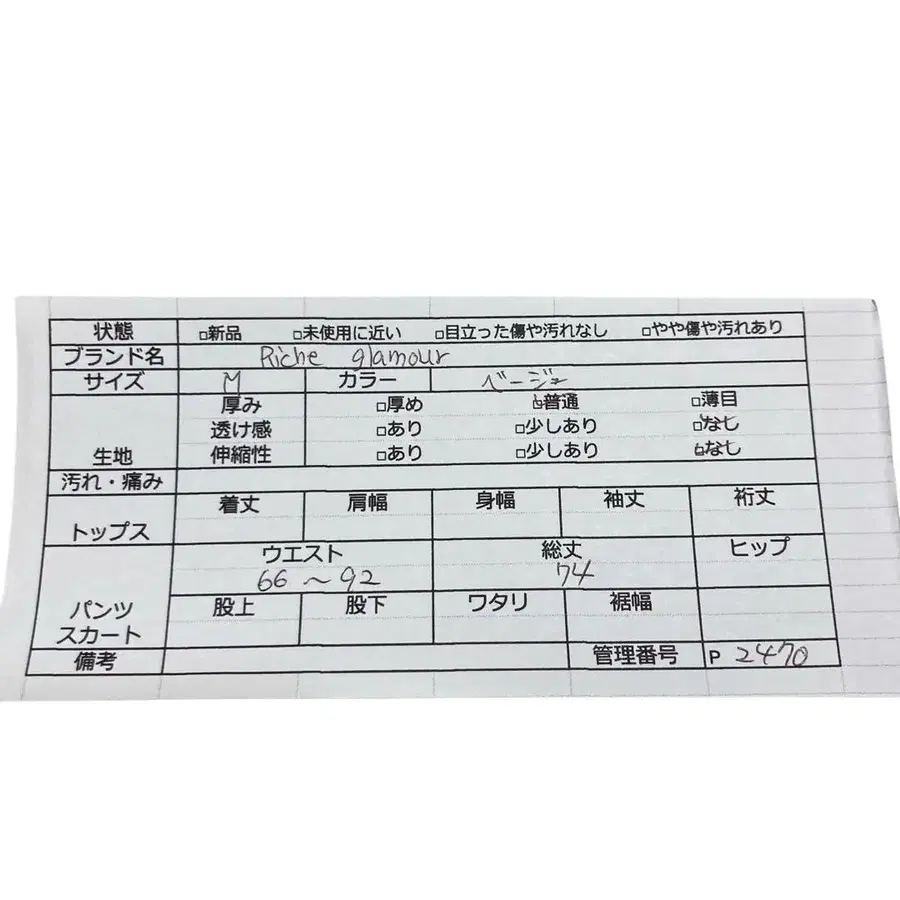 状態 □新品 □未使用に近い □目立った傷や汚れなし □やや傷や汚れあり
ブランド名 Riche glamour
サイズ M カラー ベージュ
厚み □厚め ☑普通 □薄目
透け感 □あり □少しあり ☑なし
生地 伸縮性 □あり □少しあり ☑なし
汚れ・痛み
着丈 肩幅 身幅 袖丈 裄丈
トップス
ウエスト 総丈 ヒップ
66～92 74
パンツ 股上 股下 ワタリ 裾幅
スカート
備考 管理番号 P 2470